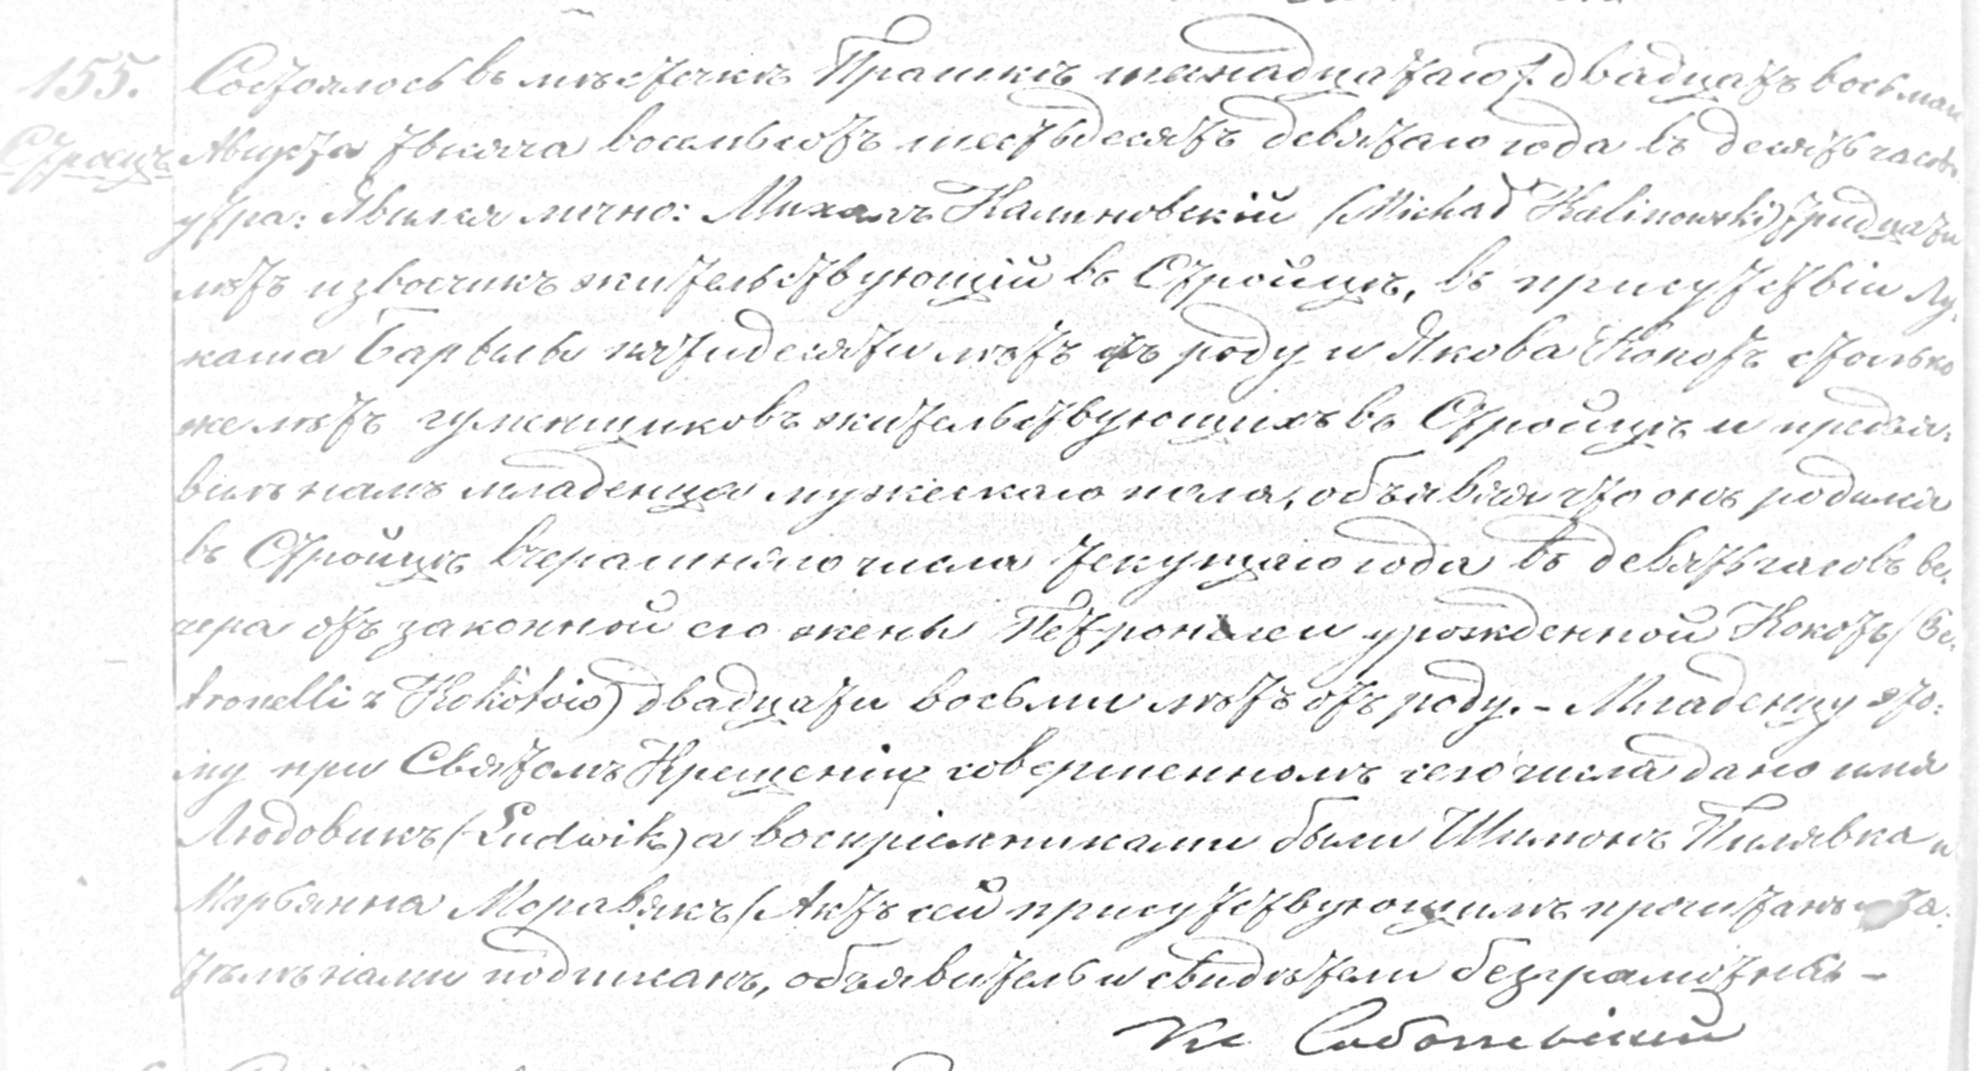 155.
Стройцъ
Состоялось въ мѣстечкѣ Прашкѣ шеснадцатаго / двадцать восьмаго
Августа тысяча восемьсотъ шестьдесятъ девятаго года въ десять часовъ
утра: Явился лично: Михалъ Калиновскій (Michał Kalinowski) тридцати
лѣтъ извосчикъ жительствующій въ Стройцѣ, въ присутствіи Лу-
каша Барылы пятидесяти лѣтъ отъ роду и Якова Кокотъ столько
же лѣтъ гуменщиковъ жительствующихъ въ Стройцѣ и предъя-
вилъ намъ младенца мужескаго пола, объявляя что онъ родился
въ Стройцѣ вчерашняго числа текущаго года въ девять часовъ ве-
чера отъ законной его жены Петронелеи урожденной Кокотъ (Pe-
tronelli z Kokotów) двадцати восьми лѣтъ отъ роду. - Младенцу это-
му при Святомъ Крещеніи совершенномъ сего числа дано имя
Людовикъ (Ludwik) а воспріемниками были Шимонъ Пилявка и
Марьянна Моравякъ / Актъ сей присутствующимъ прочитанъ а за-
тѣмъ нами подписанъ, объявитель и свидѣтели безграмотны -
Кс